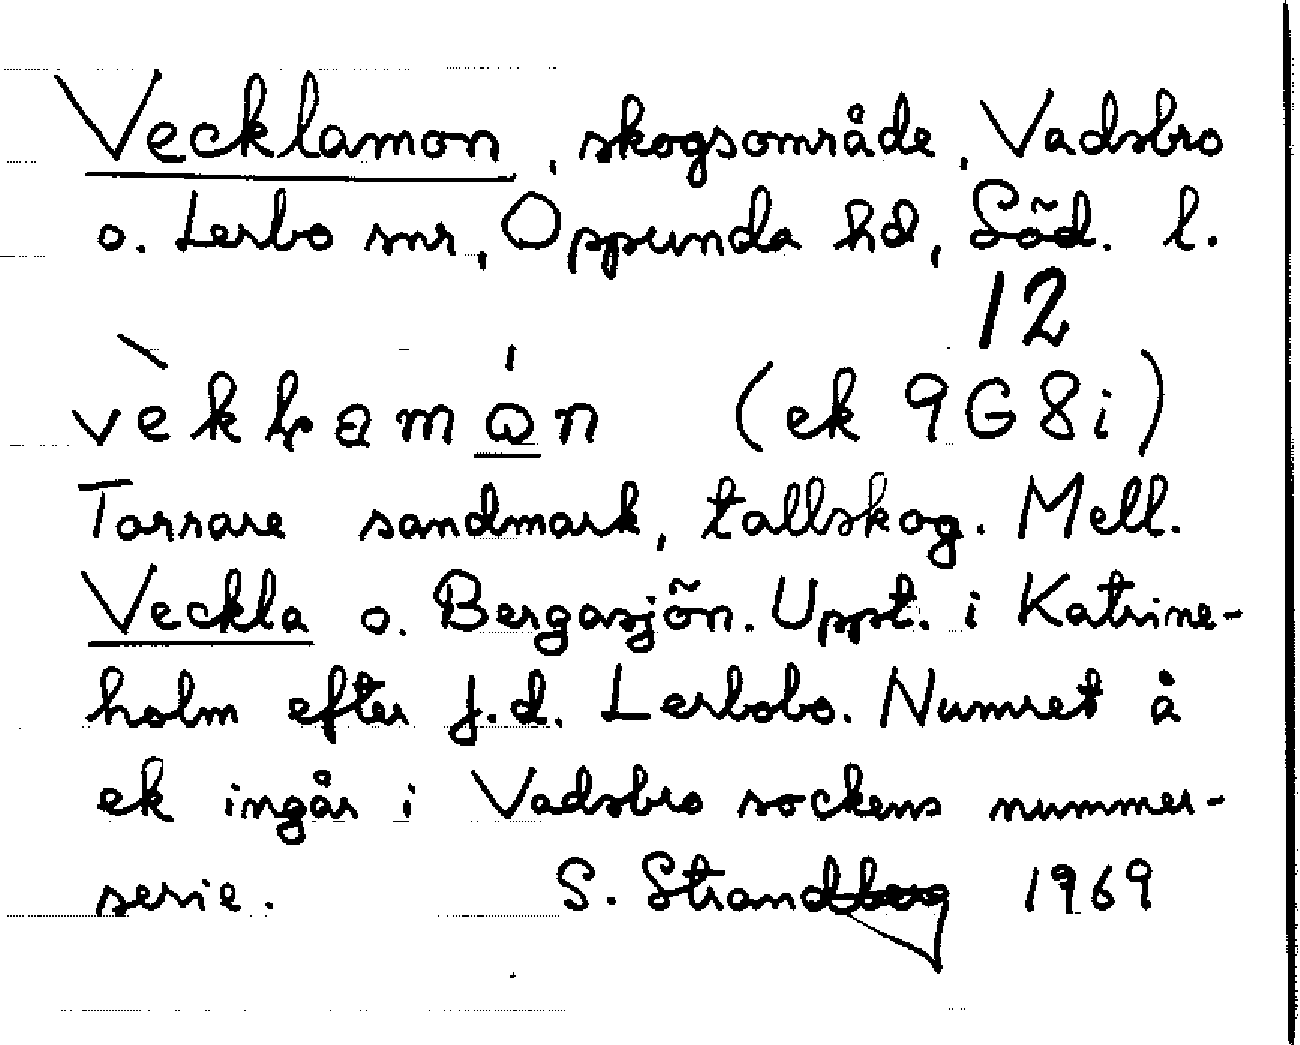 Vecklamon, skogsområde, Vadsbro
o. Lerbo snr, Oppunda hd, Söd. l.
12
vèkḷamɷ́n (ek 9G8i)
Torrare sandmark, tallskog. Mell.
Veckla o. Bergasjön. Uppt. i Katrine-
holm efter f.d. Lerbobo. Numret å
ek ingår i Vadsbro sockens nummer-
serie. S. Strandberg 1969